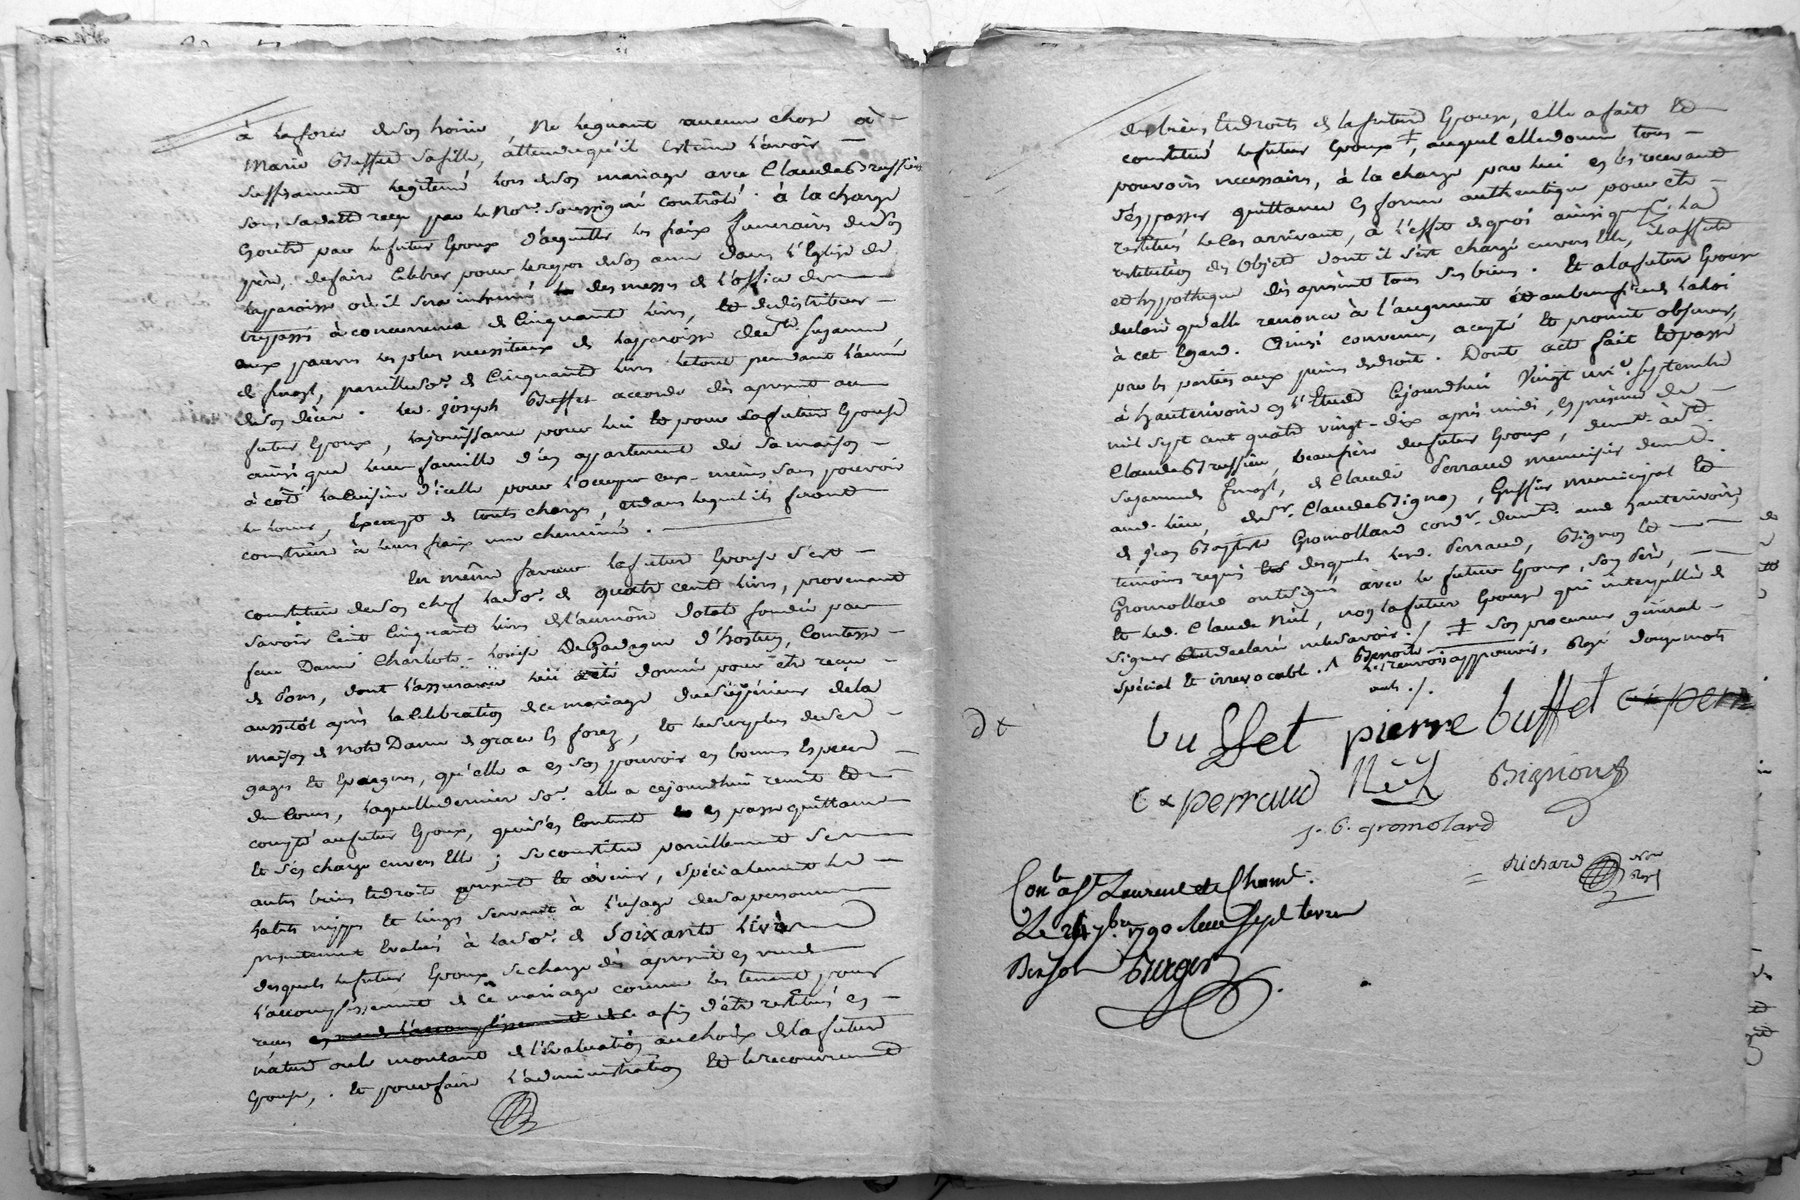 à la force de son hoirie, Ne leguant aucune chose à
Marie Buffet sa fille, attendu qu'il estime l'avoir
suffisament legitimé lors de son mariage avec Claude Brussieu
sous sa datte reçu par le No.re soussigné controlé. à la charge
par le futur Epoux d'acquitter les fraix funeraires de son
père, de faire célébrer pour le repos de son ame dans l'Eglise de
la paroisse où il sera inhumé des messes de l'office des
trepassés à concurrence de Cinquante livres, et de distribuer
aux pauvres les plus necessiteux de la paroisse de Ste. Suzanne
pareille so.e de Cinquante livres le tout pendant l'année
de son décès. led. joseph Buffet accorde dès aprésent au
futur Epoux, la jouissance pour lui et pour la future Epouse
ainsi que leur famille d'un appartement de sa maison
à côté la Cuisine d'icelle pour l'occuper eux-mêmes sans pouvoir
le louer, Exempt de toute charge, et dans lequel ils feront
construire à leurs fraix une cheminée.
En même faveur la future Epouse s'est
constituée de son chef la so.e de quatre cent livres, provenant
savoir Cent Cinquante livres de l'aumône dotale fondée par
feu Dame Charlotte-Louise De Gadagne d'hostun, Comtesse
de Pons, dont l'assurance lui a été donnée pour être reçue
aussitôt après la Célébration de ce mariage du Supérieur de la
maison de Notre Dame de grace en forez, et le surplus de ses
gages et Epargnes, qu'elle a en son pouvoir en bonnes Especes
de Cours, laquelle derniere so.e elle a cejourdhui remise et
compté au futur Epoux, qui s'en Contente en passe quittance
et s'en charge envers Elle; se constitue pareillement ses
autres biens et droits présents et à venir, spécialement les
habits nippes et linges servant à l'usage de sa personne
presentement Evalués à la so.e de Soixante livres
desquels le futur Epoux se charge dès aprésent en vue de
l'accomplissement de ce mariage comme les tenant pour
reçus afin d'être restitués en
nature ou le montant de l'Evaluation au choix de la future
Epouse, et pour faire l'administration et le recouvrement
des biens et droits de la future Epouse, elle a fait et
constitué le futur Epoux ‡, auquel elle donne tous
pouvoirs necessaires, à la charge par lui en les recevant
d'en passer quittance en forme authentique pour être
restitués le Cas arrivant, à l'effet de quoi ainsi que de la
restitution des Objets dont il s'est chargé envers Elle, il affecte
et hypotheque dès aprésent tous ses biens. Et a la future Epouse
declaré qu'elle renonce à l'augment et au benefice de la loi
à cet Egard. Ainsi convenu, accepté et promis observer,
par les parties aux peines de droit. Dont acte fait et passé
à hauterivoire en l'Etude Cejourdhui Vingt un.e Septembre
mil sept cent quatre vingt-dix après midi, en présence de
Claude Brussieu, beaufrere du futur Epoux, demt. à Ste.
Suzanne, de Claude Perraud menuisier demt.
aud. lieu, de sr. Claude Bignon, Greffier municipal et
de jean Baptiste Gromollard cord.r demt. aud hauterivoire,
temoins requis desquels lesd. Perraud, Bignon et
Gromollard ont signé avec le futur Epoux, son Père,
et led. Claude Néél, non la future Epouse qui interpellée de
signer a declaré ne le savoir. /. ‡ Son procureur général
Spécial et irrevocable. /. Benoite
le renvoi approuvé, Rayé douze mots
nuls ./.
De
buffet pierre buffet C + perr
C + perraud Néél Bignon
J. B. gromolard
Richard No.re Royl
Con.le à St. Laurent de Cham.t.
Le 24 7bre. 1790 Reçu Sept livres
Dix sols Burger